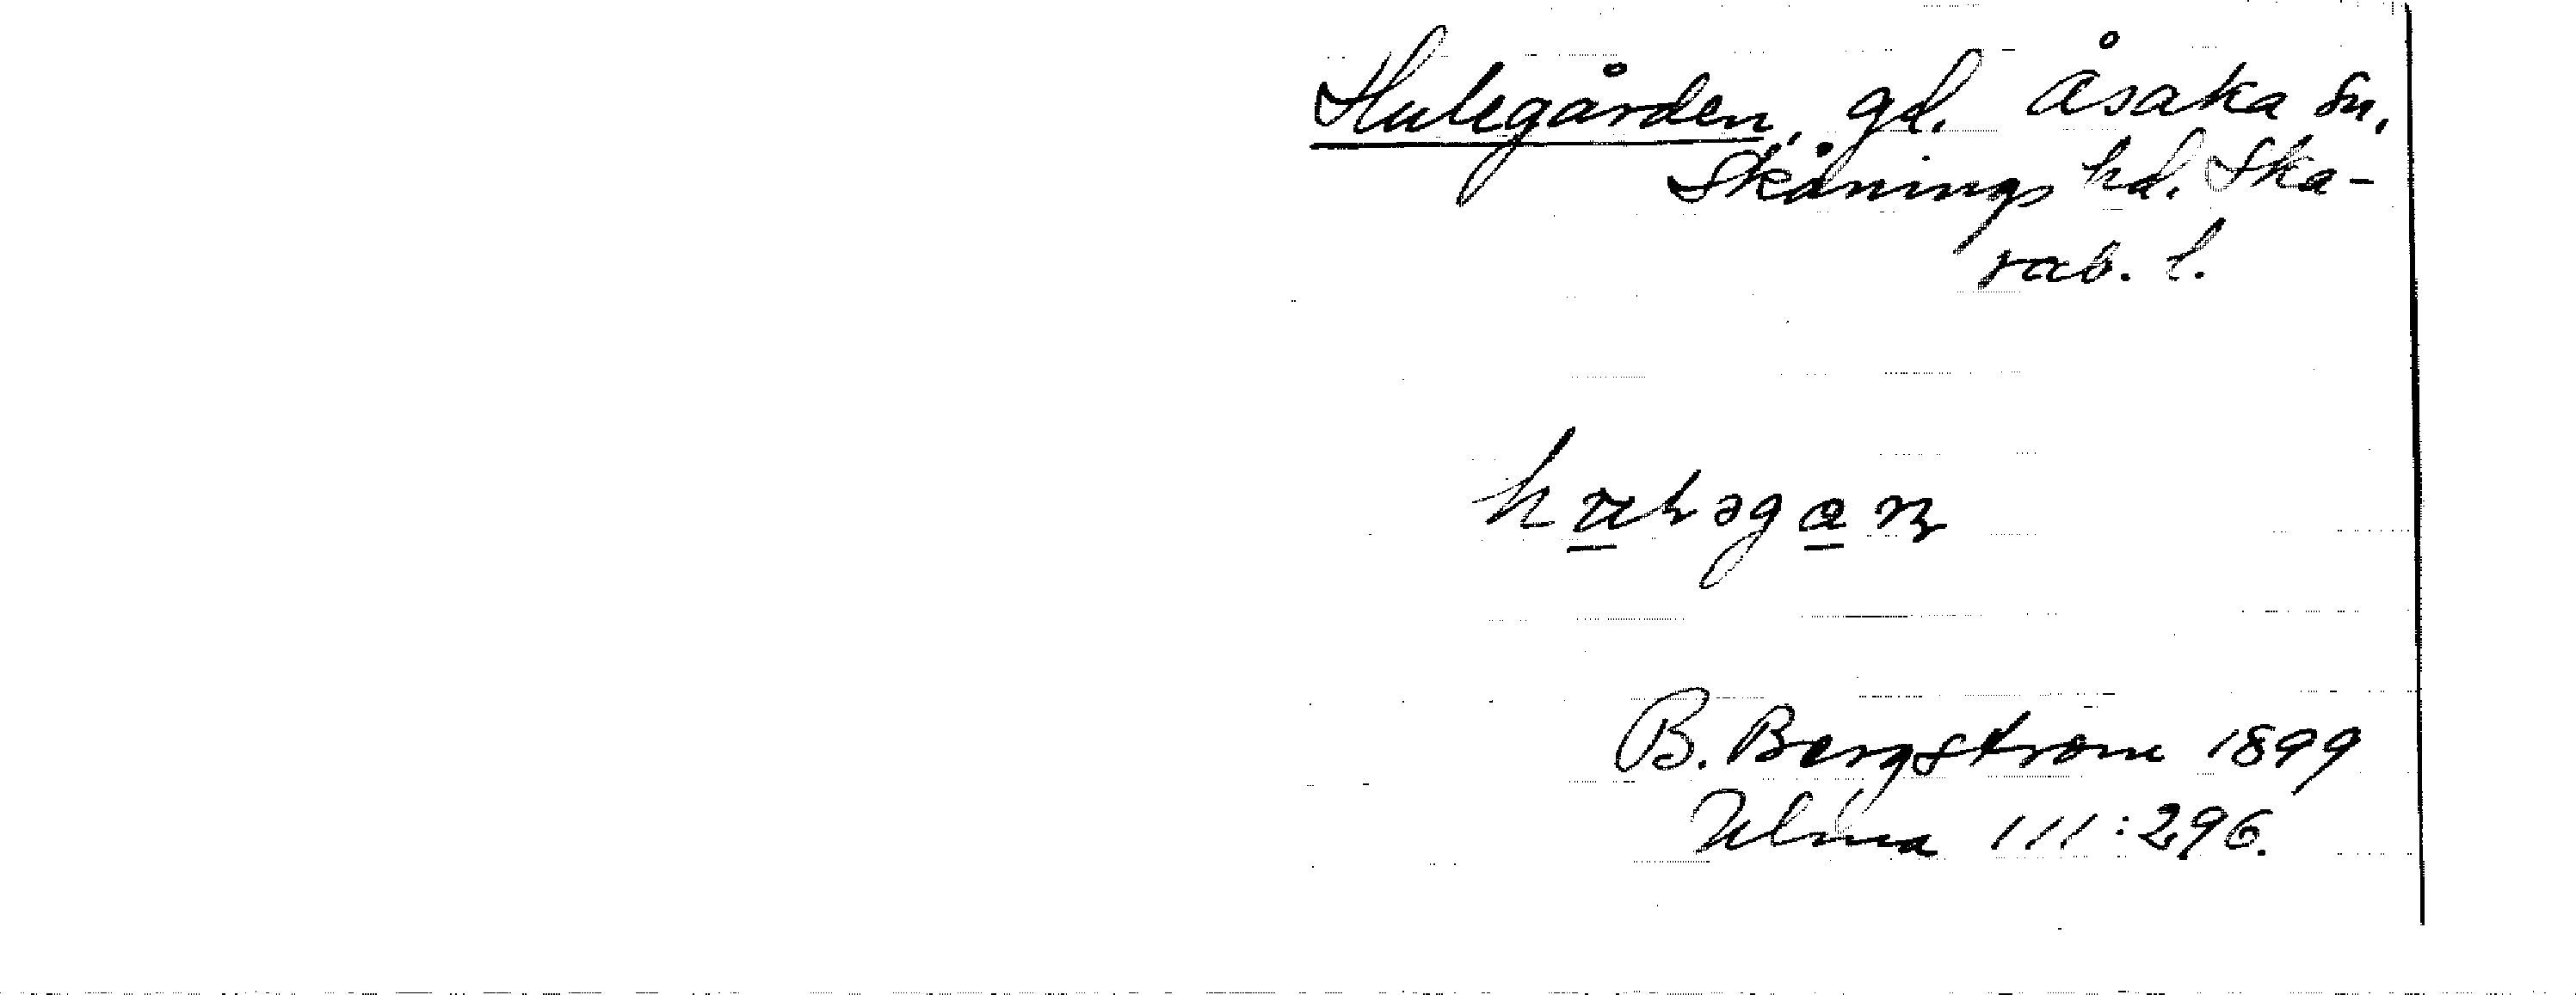 Hulegården, gd. Åsaka sn,
Skånings hd. Ska-
rab. l.
B. Bergstrom 1899
Ulma 111:296.